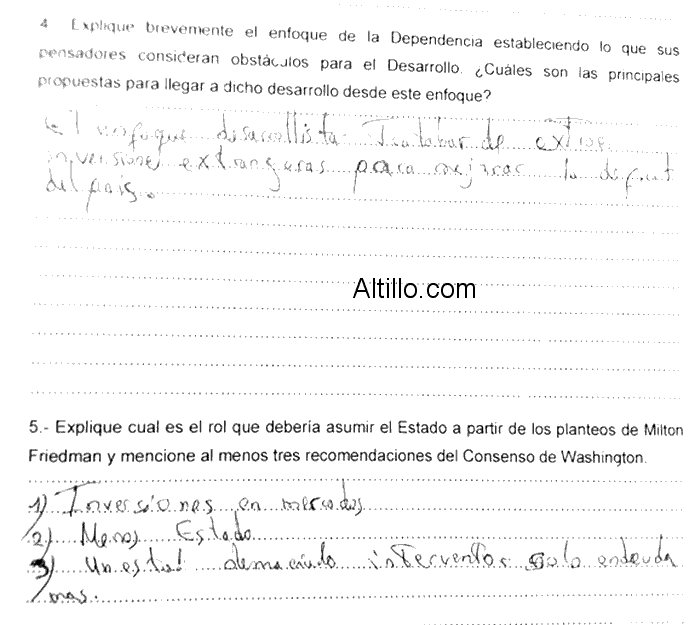 4 Explique brevemente el enfoque de la Dependencia estableciendo lo que sus
pensadores consideran obstáculos para el Desarrollo. ¿Cuáles son las principales
propuestas para llegar a dicho desarrollo desde este enfoque?
El enfoque desarrollista Trataba de
inversiones extrangeras para mejorar la
del pais.
Altillo.com
5.- Explique cual es el rol que debería asumir el Estado a partir de los planteos de Milton
Friedman y mencione al menos tres recomendaciones del Consenso de Washington.
1) Inversiones en mercados
2) Menos Estado
3) Un demaciado interventor solo endeuda
mas.